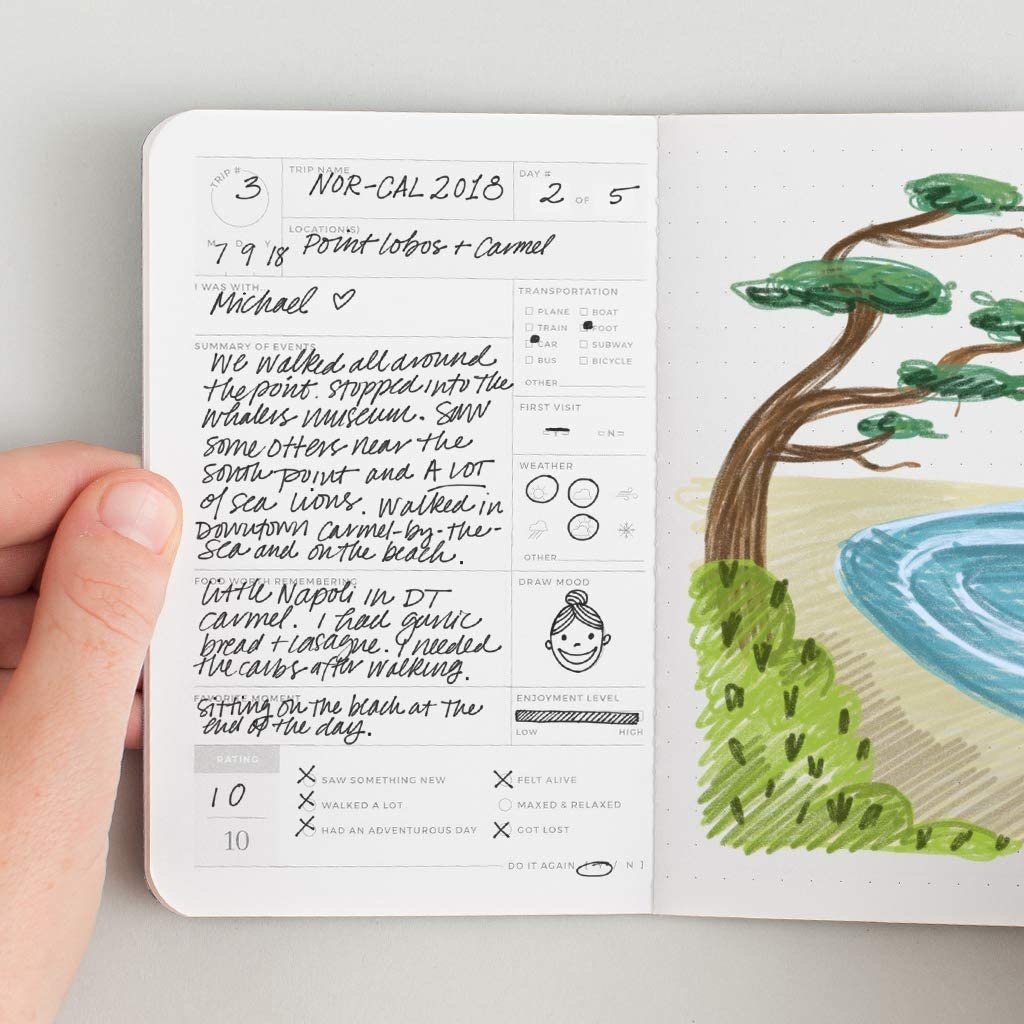 TRIP # 3
TRIP NAME NOR-CAL 2018
DAY # 2 OF 5
M D Y
7 9 18
LOCATION(S)
Point lobos + Carmel
I WAS WITH...
Michael ♡
SUMMARY OF EVENTS
We walked all around
the point. Stopped into the
whalers museum. Saw
some otters near the
south point and A LOT
of sea lions. Walked in
Downtown Carmel-by-the-
Sea and on the beach.
FOOD WORTH REMEMBERING
little Napoli in DT
Carmel. I had garlic
bread + lasagne. I needed
the carbs after walking.
FAVORITE MOMENT
Sitting on the beach at the
end of the day.
TRANSPORTATION
PLANE BOAT
TRAIN FOOT
CAR SUBWAY
BUS BICYCLE
OTHER
FIRST VISIT
Y N
WEATHER
OTHER
DRAW MOOD
ENJOYMENT LEVEL
LOW HIGH
RATING
10
10
SAW SOMETHING NEW
WALKED A LOT
HAD AN ADVENTUROUS DAY
FELT ALIVE
MAXED & RELAXED
GOT LOST
DO IT AGAIN [ Y / N ]